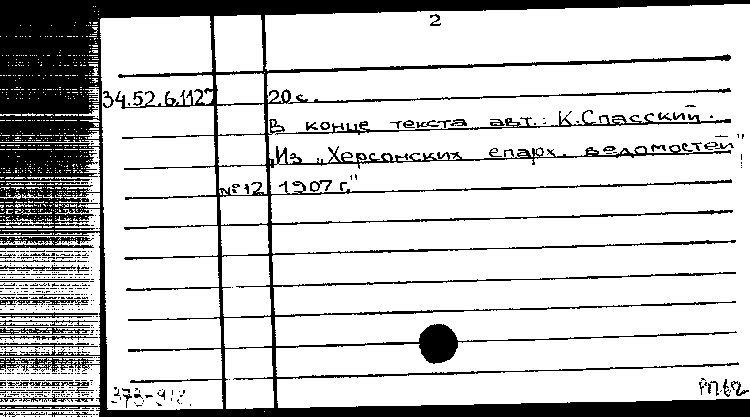 2
34.52.6.1127 20 с.
В конце текста авт.: К.Спасский.
„Из „Херсонских епарх. ведомостей"
№12 1907 г."